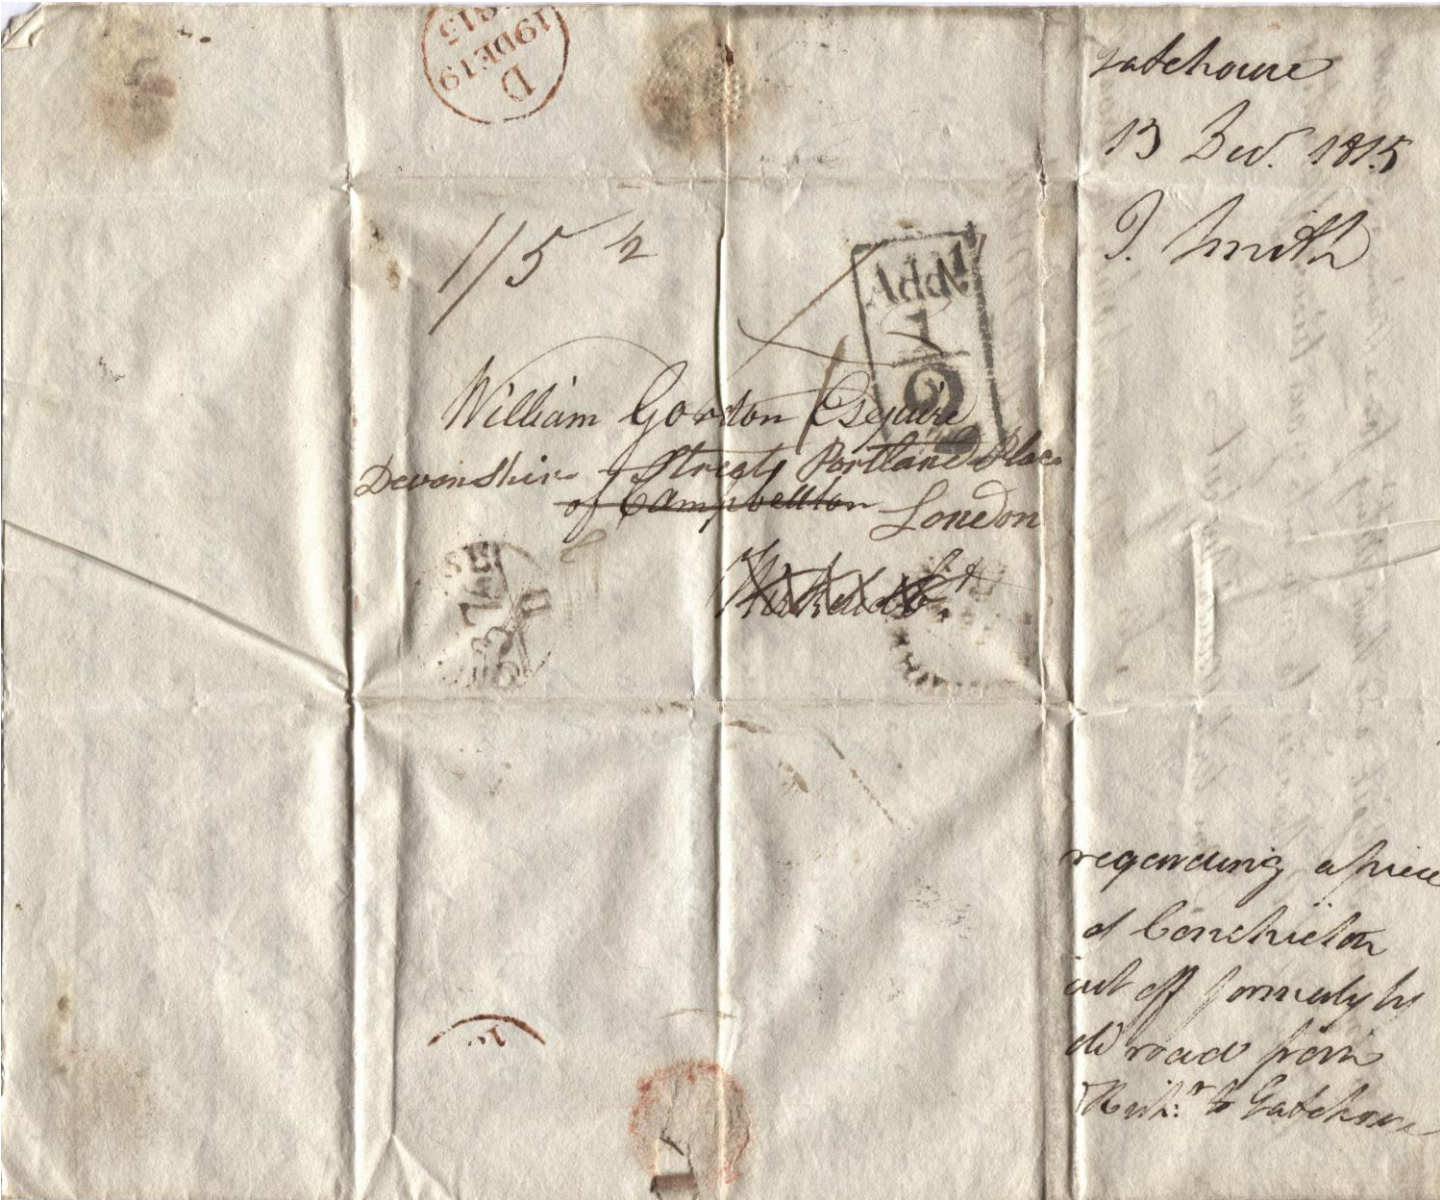 D
19 DE 19
1815
Gatehouse
13 Decr. 1815
J. Smith
1/5 1/2
Addl.
1
2
William Gordon Esquire
Devonshire Street Portland Place
of Campbellton London
Kirkcudbt.
regarding a piece
of Conchieton
cut off formerly by
old road from
Kirkt. to Gatehouse